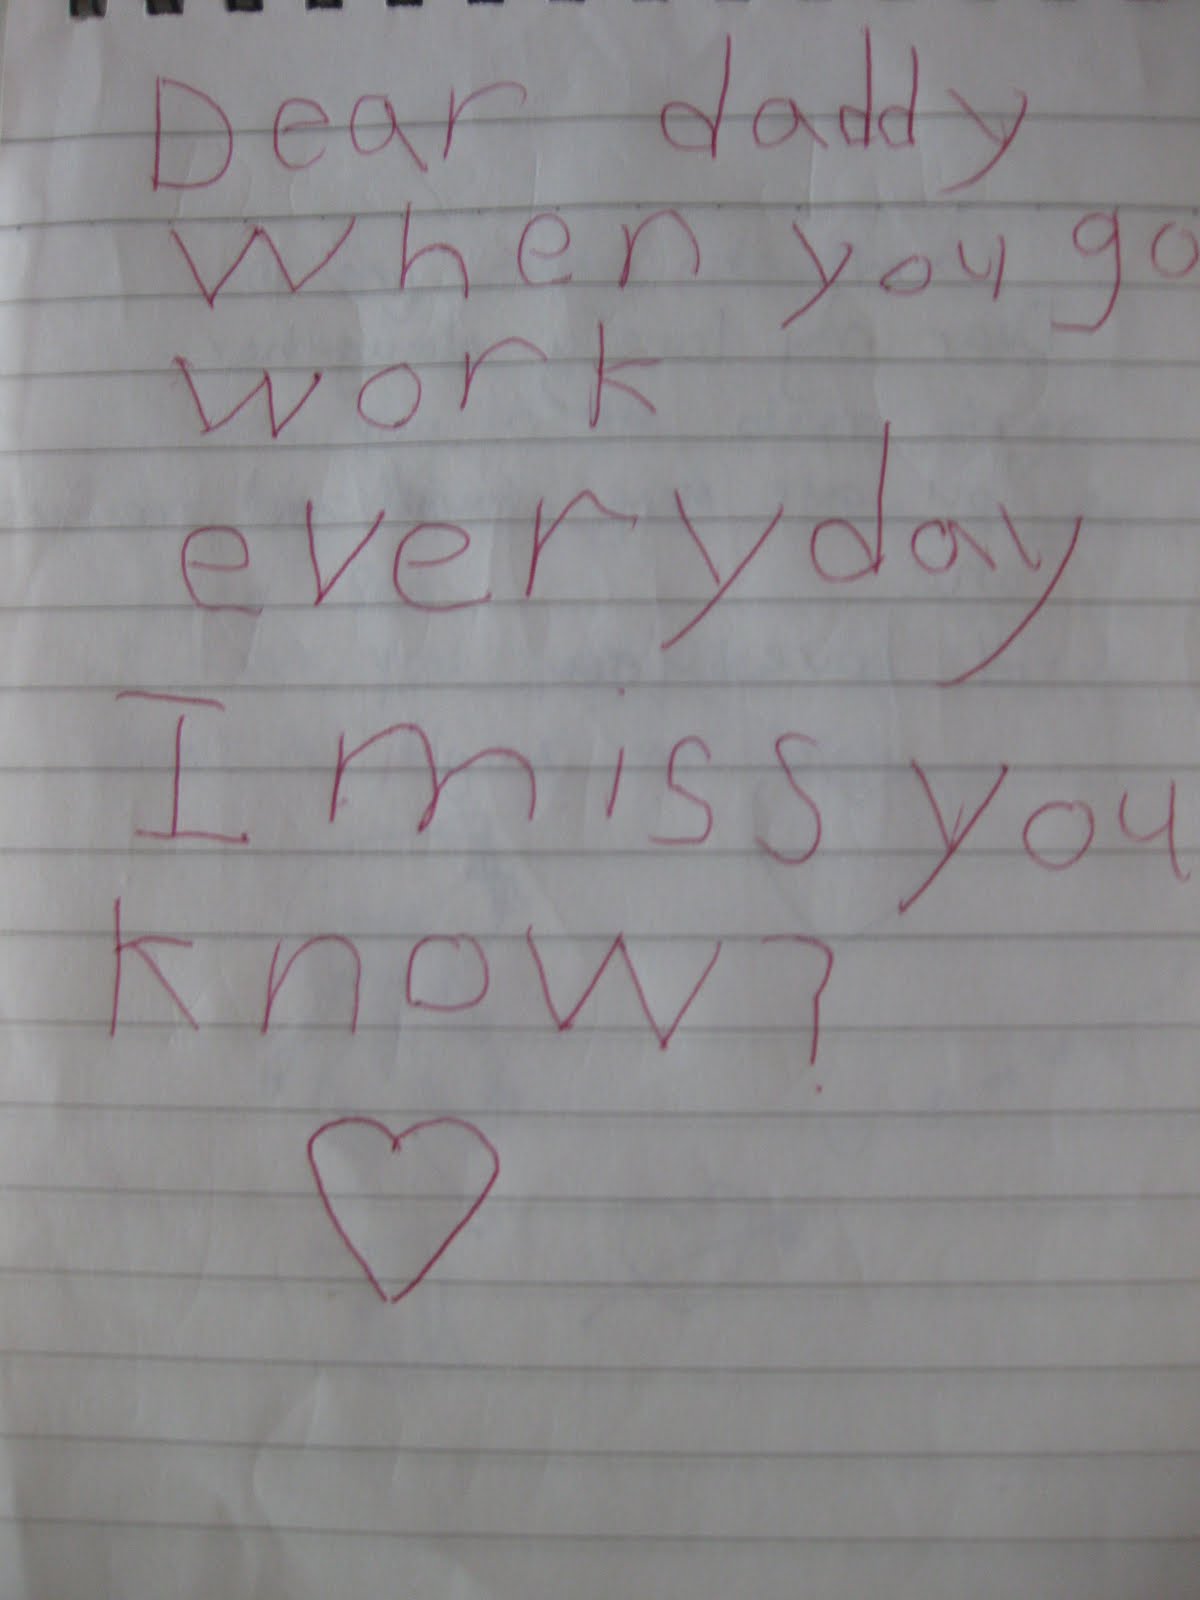 Dear daddy
when you go
work
everyday
I miss you
know?